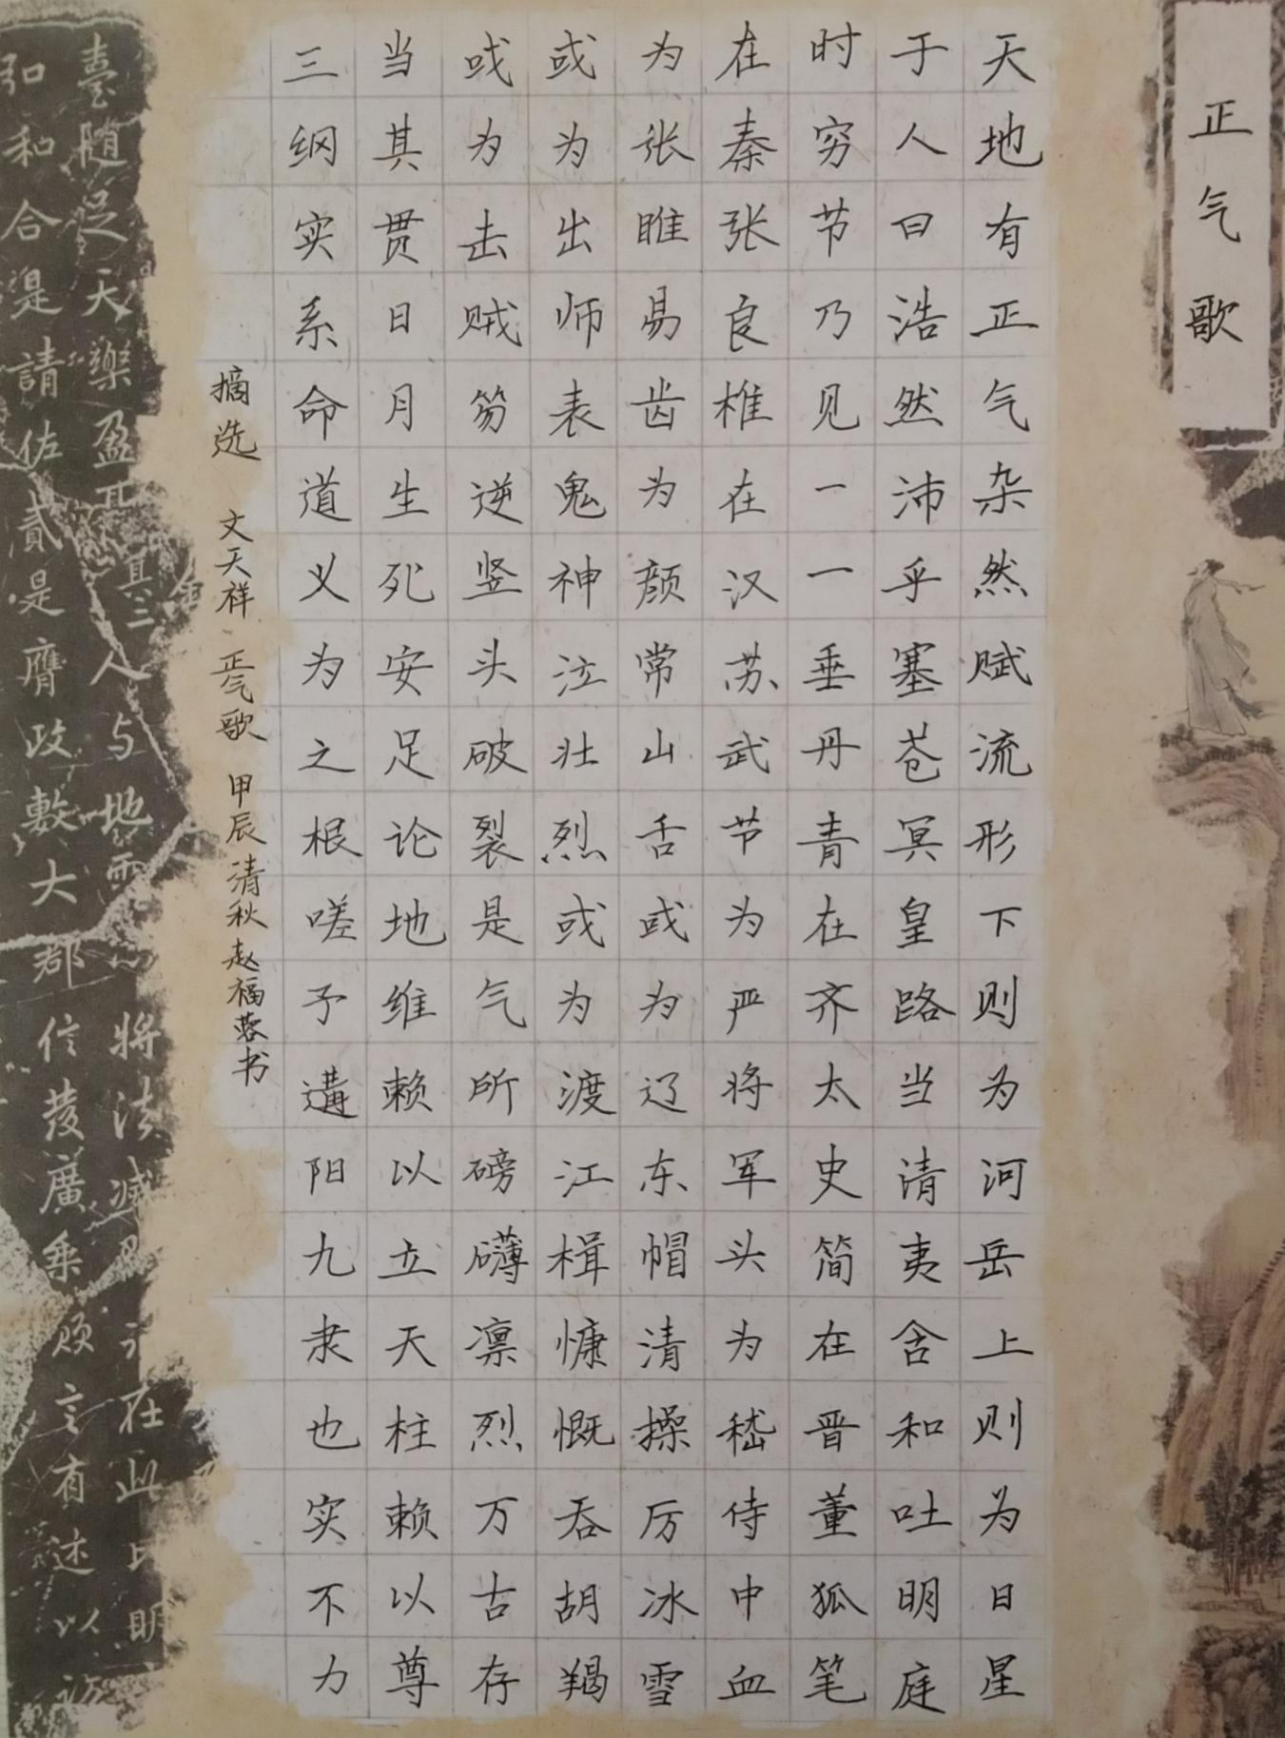 正气歌
天地有正气杂然赋流形下则为河岳上则为日星
于人曰浩然沛乎塞苍冥皇路当清夷含和吐明庭
时穷节乃见一一垂丹青在齐太史简在晋董狐笔
在秦张良椎在汉苏武节为严将军头为嵇侍中血
为张睢易齿为颜常山舌或为辽东帽清操厉冰雪
或为出师表鬼神泣壮烈或为渡江楫慷慨吞胡羯
或为击贼笏逆竖头破裂是气所磅礴凛烈万古存
当其贯日月生死安足论地维赖以立天柱赖以尊
三纲实系命道义为之根嗟予遘阳九隶也实不力
摘选 文天祥 正气歌 甲辰清秋赵福蓉书
臺随足天樂盈 人与地 将法 在此
和合是請佐貳是膺政敷大郡信茂廣乘 言有述以